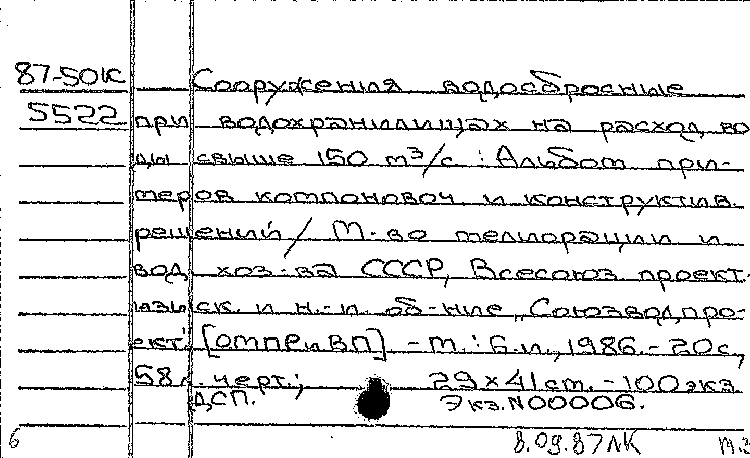 87-50К Сооружения водосбросные
5522 при водохранилищах на расход во
ды свыше 150 м³/с : Альбом при-
меров компоновоч. и конструктив.
решений / М-во мелиорации и
вод. хоз-ва СССР, Всесоюз. проект.-
изыск. и н.-и. об-ние „Союзводпро-
ект". [ОМПР и ВП] - М. : Б.и., 1986. - 20 с,
58 л. черт.; 29 х 41 см. - 100 экз.
ДСП. Экз. N00006.
6 8.09.87 ЛК